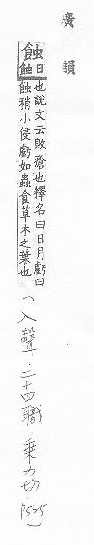 廣韻
蝕
日蝕也說文云敗瘡也釋名曰日月虧曰
蝕稍小侵虧如蟲食草木之葉也
(入聲.二十四職 乗力切 p525)